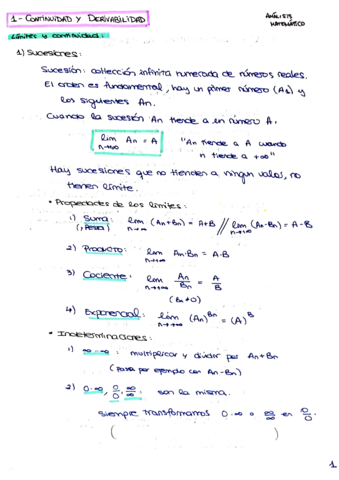 1 - CONTINUIDAD Y DERIVABILIDAD
ANÁLISIS MATEMÁTICO
Límites y continuidad:
1) Sucesiones:
Sucesión: collección infinita numerada de números reales.
El orden es fundamental, hay un primer número (A₁) y
los siguientes An.
Cuando la sucesión An tiende a un número A.
lim n→+∞ An = A "An tiende a A cuando
n tiende a +∞"
Hay sucesiones que no tienden a ningún valor, no
tienen límite.
• Propiedades de los límites:
1) Suma: lim n→∞ (An+Bn) = A+B // lim n→+∞ (An-Bn) = A-B
(y Resta)
2) Producto: lim n→∞ An·Bn = A·B
3) Cociente: lim n→+∞ An/Bn = A/B
(Bn≠0)
4) Exponencial: lim n→+∞ (An)^Bn = (A)^B
• Indeterminaciones:
1) ∞-∞ : multiplicar y dividir por An+Bn
(pasa por ejemplo con An-Bn)
2) 0·∞, 0/0, ∞/∞ : son la misma.
siempre transformamos 0·∞ o ∞/∞ en 0/0.
( )
1